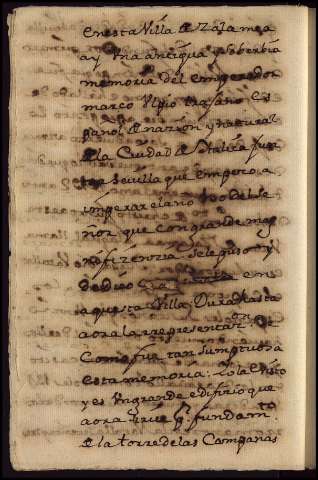 en esta Villa de Zalamea
ay Una antigua y soberbia
memoria del emperador
marco Ulpio trajano es
pañol de nazion y natural
de la Ciudad de Italica jun
to a sevilla que empezo a
imperar el año 100 del se
ñor que con grande mag
nifizenzia sele puso y
dedico en
aquesta Villa; Dura hasta
aora la rrepresentazon De
Como fue tan sumptuosa
esta memoria: Yo la e Visto
y es Un grande edifizio que
aora sirve de fundamto
de la torre de las Campanas